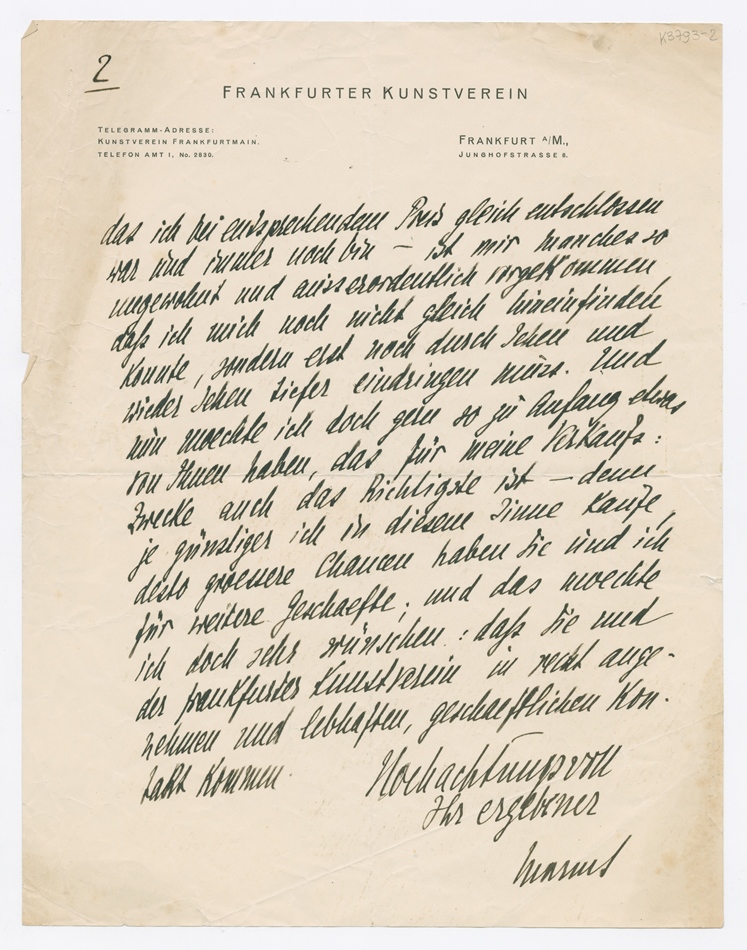 K3793-2
2
FRANKFURTER KUNSTVEREIN
TELEGRAMM-ADRESSE:
KUNSTVEREIN FRANKFURTMAIN.
TELEFON AMT I, No. 2830.
FRANKFURT A/M.,
JUNGHOFSTRASSE 8.
das ich bei entsprechendem Preis gleich entschlossen
war und immer noch bin — ist mir manches so
ungewohnt und ausserordentlich vorgekommen
daß ich mich noch nicht gleich hineinfinden
konnte, sondern erst noch durch Sehen und
wieder Sehen tiefer eindringen muss. Und
nun moechte ich doch gern so zu Anfang etwas
von Ihnen haben, das für meine Verkaufs:
zwecke auch das Richtigste ist — denn
je günstiger ich in diesem Sinne kaufe,
desto groessere Chancen haben Sie und ich
für weitere Geschaefte; und das moechte
ich doch sehr wünschen: daß Sie und
der Frankfurter Kunstverein in recht ange-
nehmen und lebhaften, geschaeftlichen Kon-
takt kommen.
Hochachtungsvoll
Ihr ergebener